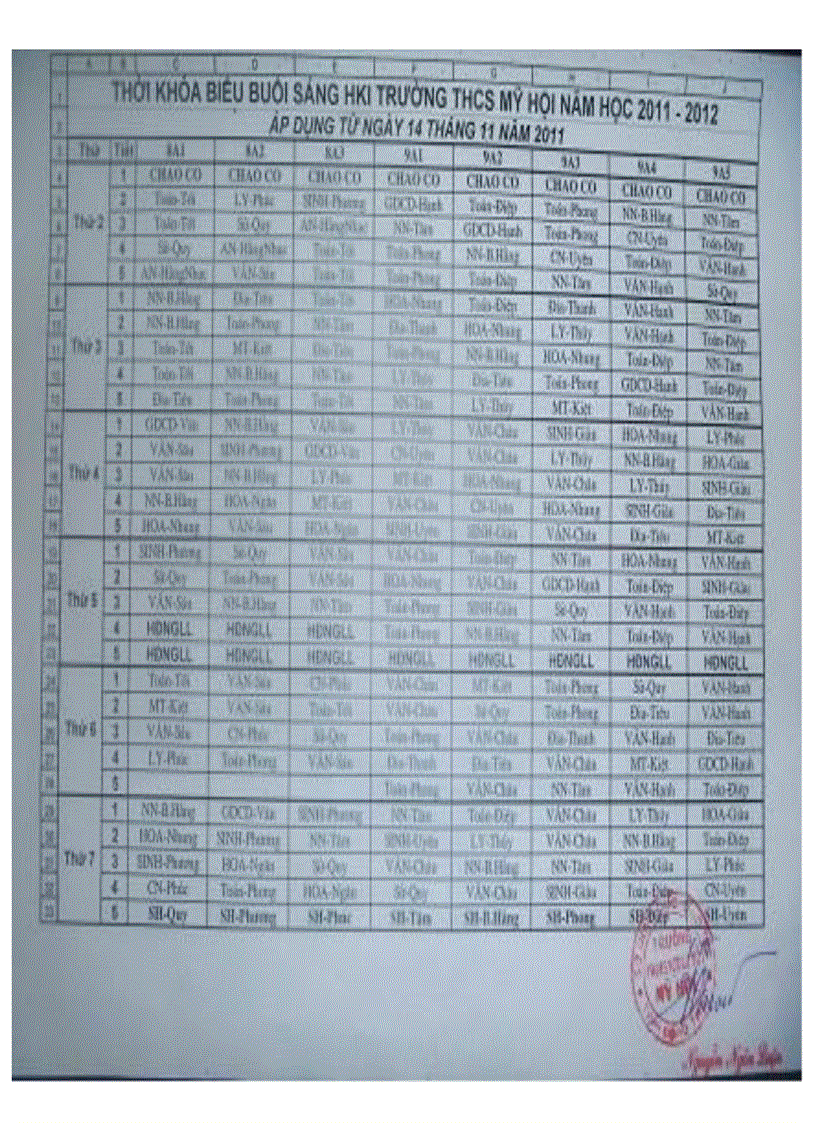 A B C D E F G H I J
1 THỜI KHÓA BIỂU BUỔI SÁNG HKI TRƯỜNG THCS MỸ HỘI NĂM HỌC 2011 - 2012
2 ÁP DỤNG TỪ NGÀY 14 THÁNG 11 NĂM 2011
3 Thứ Tiết 8A1 8A2 8A3 9A1 9A2 9A3 9A4 9A5
4 Thứ 2 1 CHAO CO CHAO CO CHAO CO CHAO CO CHAO CO CHAO CO CHAO CO CHAO CO
5 2 Toán-Tới LÝ-Phúc SINH-Phương GDCD-Hạnh Toán-Điệp Toán-Phong NN-B.Hằng NN-Tâm
6 3 Toán-Tới Sử-Quy AN-HằngNhạc NN-Tâm GDCD-Hạnh Toán-Phong CN-Uyên Toán-Điệp
7 4 Sử-Quy AN-HằngNhạc Toán-Tới Toán-Phong NN-B.Hằng CN-Uyên Toán-Điệp VĂN-Hạnh
8 5 AN-HằngNhạc VĂN-Sáu Toán-Tới Toán-Phong Toán-Điệp NN-Tâm VĂN-Hạnh Sử-Quy
9 Thứ 3 1 NN-B.Hằng Địa-Tiên Toán-Tới HOA-Nhung Toán-Điệp Địa-Thanh VĂN-Hạnh NN-Tâm
10 2 NN-B.Hằng Toán-Phong NN-Tâm Địa-Thanh HOA-Nhung LÝ-Thủy VĂN-Hạnh Toán-Điệp
11 3 Toán-Tới MT-Kiệt Địa-Tiên Toán-Phong NN-B.Hằng HOA-Nhung Toán-Điệp NN-Tâm
12 4 Toán-Tới NN-B.Hằng NN-Tâm LÝ-Thủy Địa-Tiên Toán-Phong GDCD-Hạnh Toán-Điệp
13 5 Địa-Tiên Toán-Phong Toán-Tới NN-Tâm LÝ-Thủy MT-Kiệt Toán-Điệp VĂN-Hạnh
14 Thứ 4 1 GDCD-Vân NN-B.Hằng VĂN-Sáu LÝ-Thủy VĂN-Châu SINH-Giàu HOA-Nhung LÝ-Phúc
15 2 VĂN-Sáu SINH-Phương GDCD-Vân CN-Uyên VĂN-Châu LÝ-Thủy NN-B.Hằng HOA-Giàu
16 3 VĂN-Sáu NN-B.Hằng LÝ-Phúc MT-Kiệt HOA-Nhung VĂN-Châu LÝ-Thủy SINH-Giàu
17 4 NN-B.Hằng HOA-Ngân MT-Kiệt VĂN-Châu CN-Uyên HOA-Nhung SINH-Giàu Địa-Tiên
18 5 HOA-Nhung VĂN-Sáu HOA-Ngân SINH-Uyên SINH-Giàu VĂN-Châu Địa-Tiên MT-Kiệt
19 Thứ 5 1 SINH-Phương Sử-Quy VĂN-Sáu VĂN-Châu Toán-Điệp NN-Tâm HOA-Nhung VĂN-Hạnh
20 2 Sử-Quy Toán-Phong VĂN-Sáu HOA-Nhung VĂN-Châu GDCD-Hạnh Toán-Điệp SINH-Giàu
21 3 VĂN-Sáu NN-B.Hằng NN-Tâm Toán-Phong SINH-Giàu Sử-Quy VĂN-Hạnh Toán-Điệp
22 4 HĐNGLL HĐNGLL HĐNGLL Toán-Phong NN-B.Hằng NN-Tâm Toán-Điệp VĂN-Hạnh
23 5 HĐNGLL HĐNGLL HĐNGLL HĐNGLL HĐNGLL HĐNGLL HĐNGLL HĐNGLL
24 Thứ 6 1 Toán-Tới VĂN-Sáu CN-Phúc VĂN-Châu MT-Kiệt Toán-Phong Sử-Quy VĂN-Hạnh
25 2 MT-Kiệt VĂN-Sáu Toán-Tới VĂN-Châu Sử-Quy Toán-Phong Địa-Tiên VĂN-Hạnh
26 3 VĂN-Sáu CN-Phúc Sử-Quy Toán-Phong VĂN-Châu Địa-Thanh VĂN-Hạnh Địa-Tiên
27 4 LÝ-Phúc Toán-Phong VĂN-Sáu Địa-Thanh Địa-Tiên VĂN-Châu MT-Kiệt GDCD-Hạnh
28 5 Toán-Phong VĂN-Châu NN-Tâm VĂN-Hạnh Toán-Điệp
29 Thứ 7 1 NN-B.Hằng GDCD-Vân SINH-Phương NN-Tâm Toán-Điệp VĂN-Châu LÝ-Thủy HOA-Giàu
30 2 HOA-Nhung SINH-Phương NN-Tâm SINH-Uyên LÝ-Thủy VĂN-Châu NN-B.Hằng Toán-Điệp
31 3 SINH-Phương HOA-Ngân Sử-Quy VĂN-Châu NN-B.Hằng NN-Tâm SINH-Giàu LÝ-Phúc
32 4 CN-Phúc Toán-Phong HOA-Ngân Sử-Quy VĂN-Châu SINH-Giàu Toán-Điệp CN-Uyên
33 5 SH-Quy SH-Phương SH-Phúc SH-Tâm SH-B.Hằng SH-Phong SH-Điệp SH-Uyên
TRƯỜNG
MỸ HỘI
Nguyễn Ngân